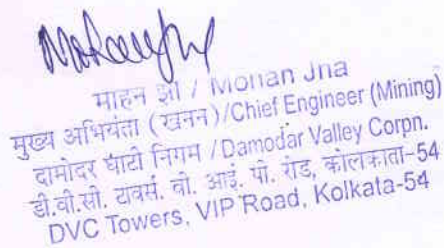 माहन झा / Mohan Jha
मुख्य अभियंता (खनन)/Chief Engineer (Mining)
दामोदर घाटी निगम /Damodar Valley Corpn.
डी.वी.सी. टावर्स. वी. आई. पी. रोड, कोलकाता-54
DVC Towers, VIP Road, Kolkata-54